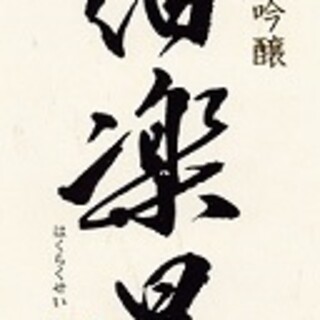 吟醸
伯楽星
はくらくせい